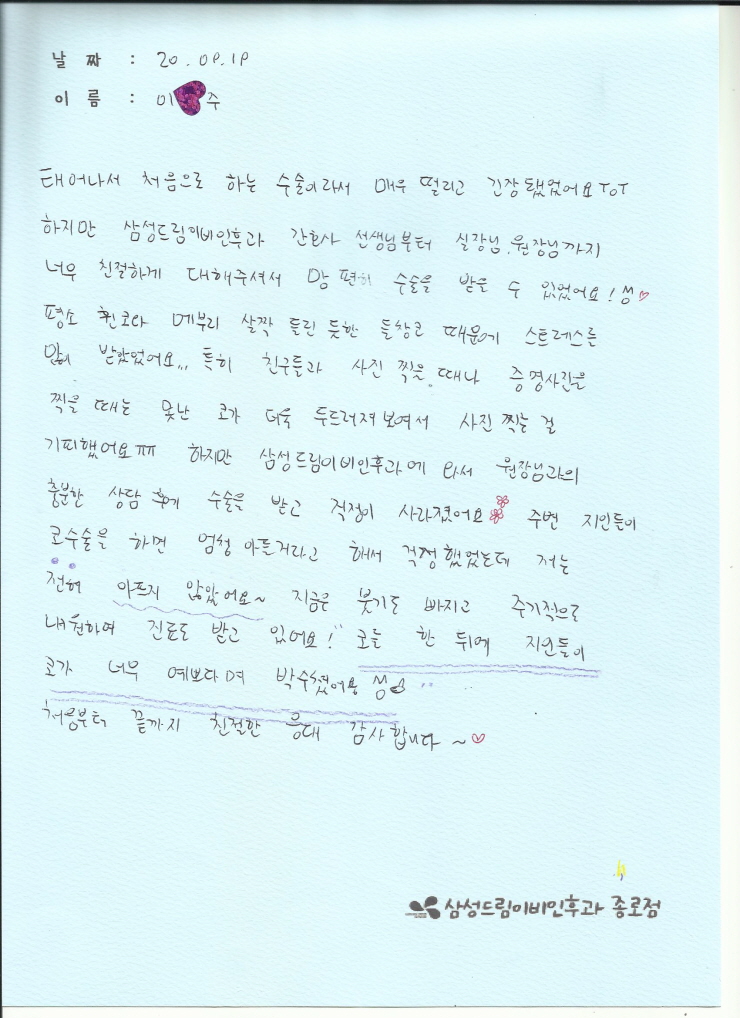 날 짜 : 20.09.19
이 름 : 이 주
태어나서 처음으로 하는 수술이라서 매우 떨리고 긴장됐었어요ㅜoㅜ
하지만 삼성드림이비인후과 간호사 선생님부터 실장님, 원장님까지
너무 친절하게 대해주셔서 맘 편히 수술을 받을 수 있었어요!
평소 휜코와 메부리 살짝 들린 듯한 들창코 때문에 스트레스를
많이 받았었어요... 특히 친구들과 사진 찍을 때나 증명사진을
찍을 때는 못난 코가 더욱 두드러져보여서 사진 찍는 걸
기피했어요ㅠㅠ 하지만 삼성드림이비인후과에 와서 원장님과의
충분한 상담 후에 수술을 받고 걱정이 사라졌어요 주변 지인들이
코수술을 하면 엄청 아플거라고 해서 걱정했었는데 저는
전혀 아프지 않았어요~ 지금은 붓기도 빠지고 주기적으로
내원하여 진료도 받고 있어요! 코를 한 뒤에 지인들이
코가 너무 예쁘다며 박수쳤어용
처음부터 끝까지 친절한 응대 감사합니다~
삼성드림이비인후과 종로점